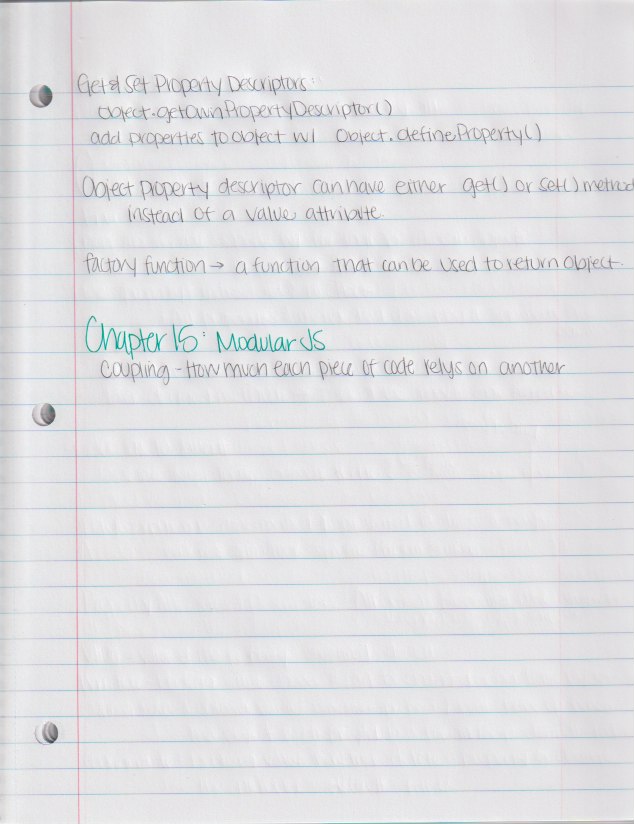 Get & Set Property Descriptors:
Object.getOwnPropertyDescriptor()
add properties to object w/ Object.defineProperty()
Object property descriptor can have either get() or set() method
instead of a value attribute.
factory function → a function that can be used to return object.
Chapter 15: Modular JS
Coupling - How much each piece of code relys on another